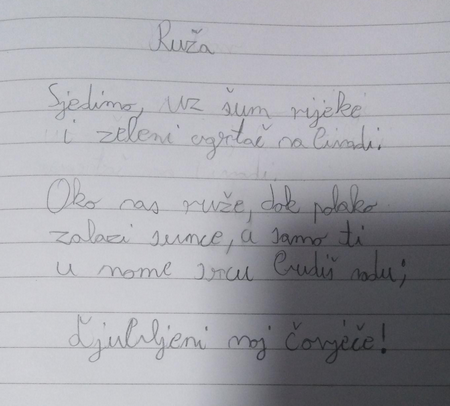 Ruža
Sjedimo, uz šum rijeke
i zeleni ogrtač na livadi.
Oko nas ruže, dok polako
zalazi sunce, a samo ti
u mome srcu budiš nadu;
Ljubljeni moj čovječe!